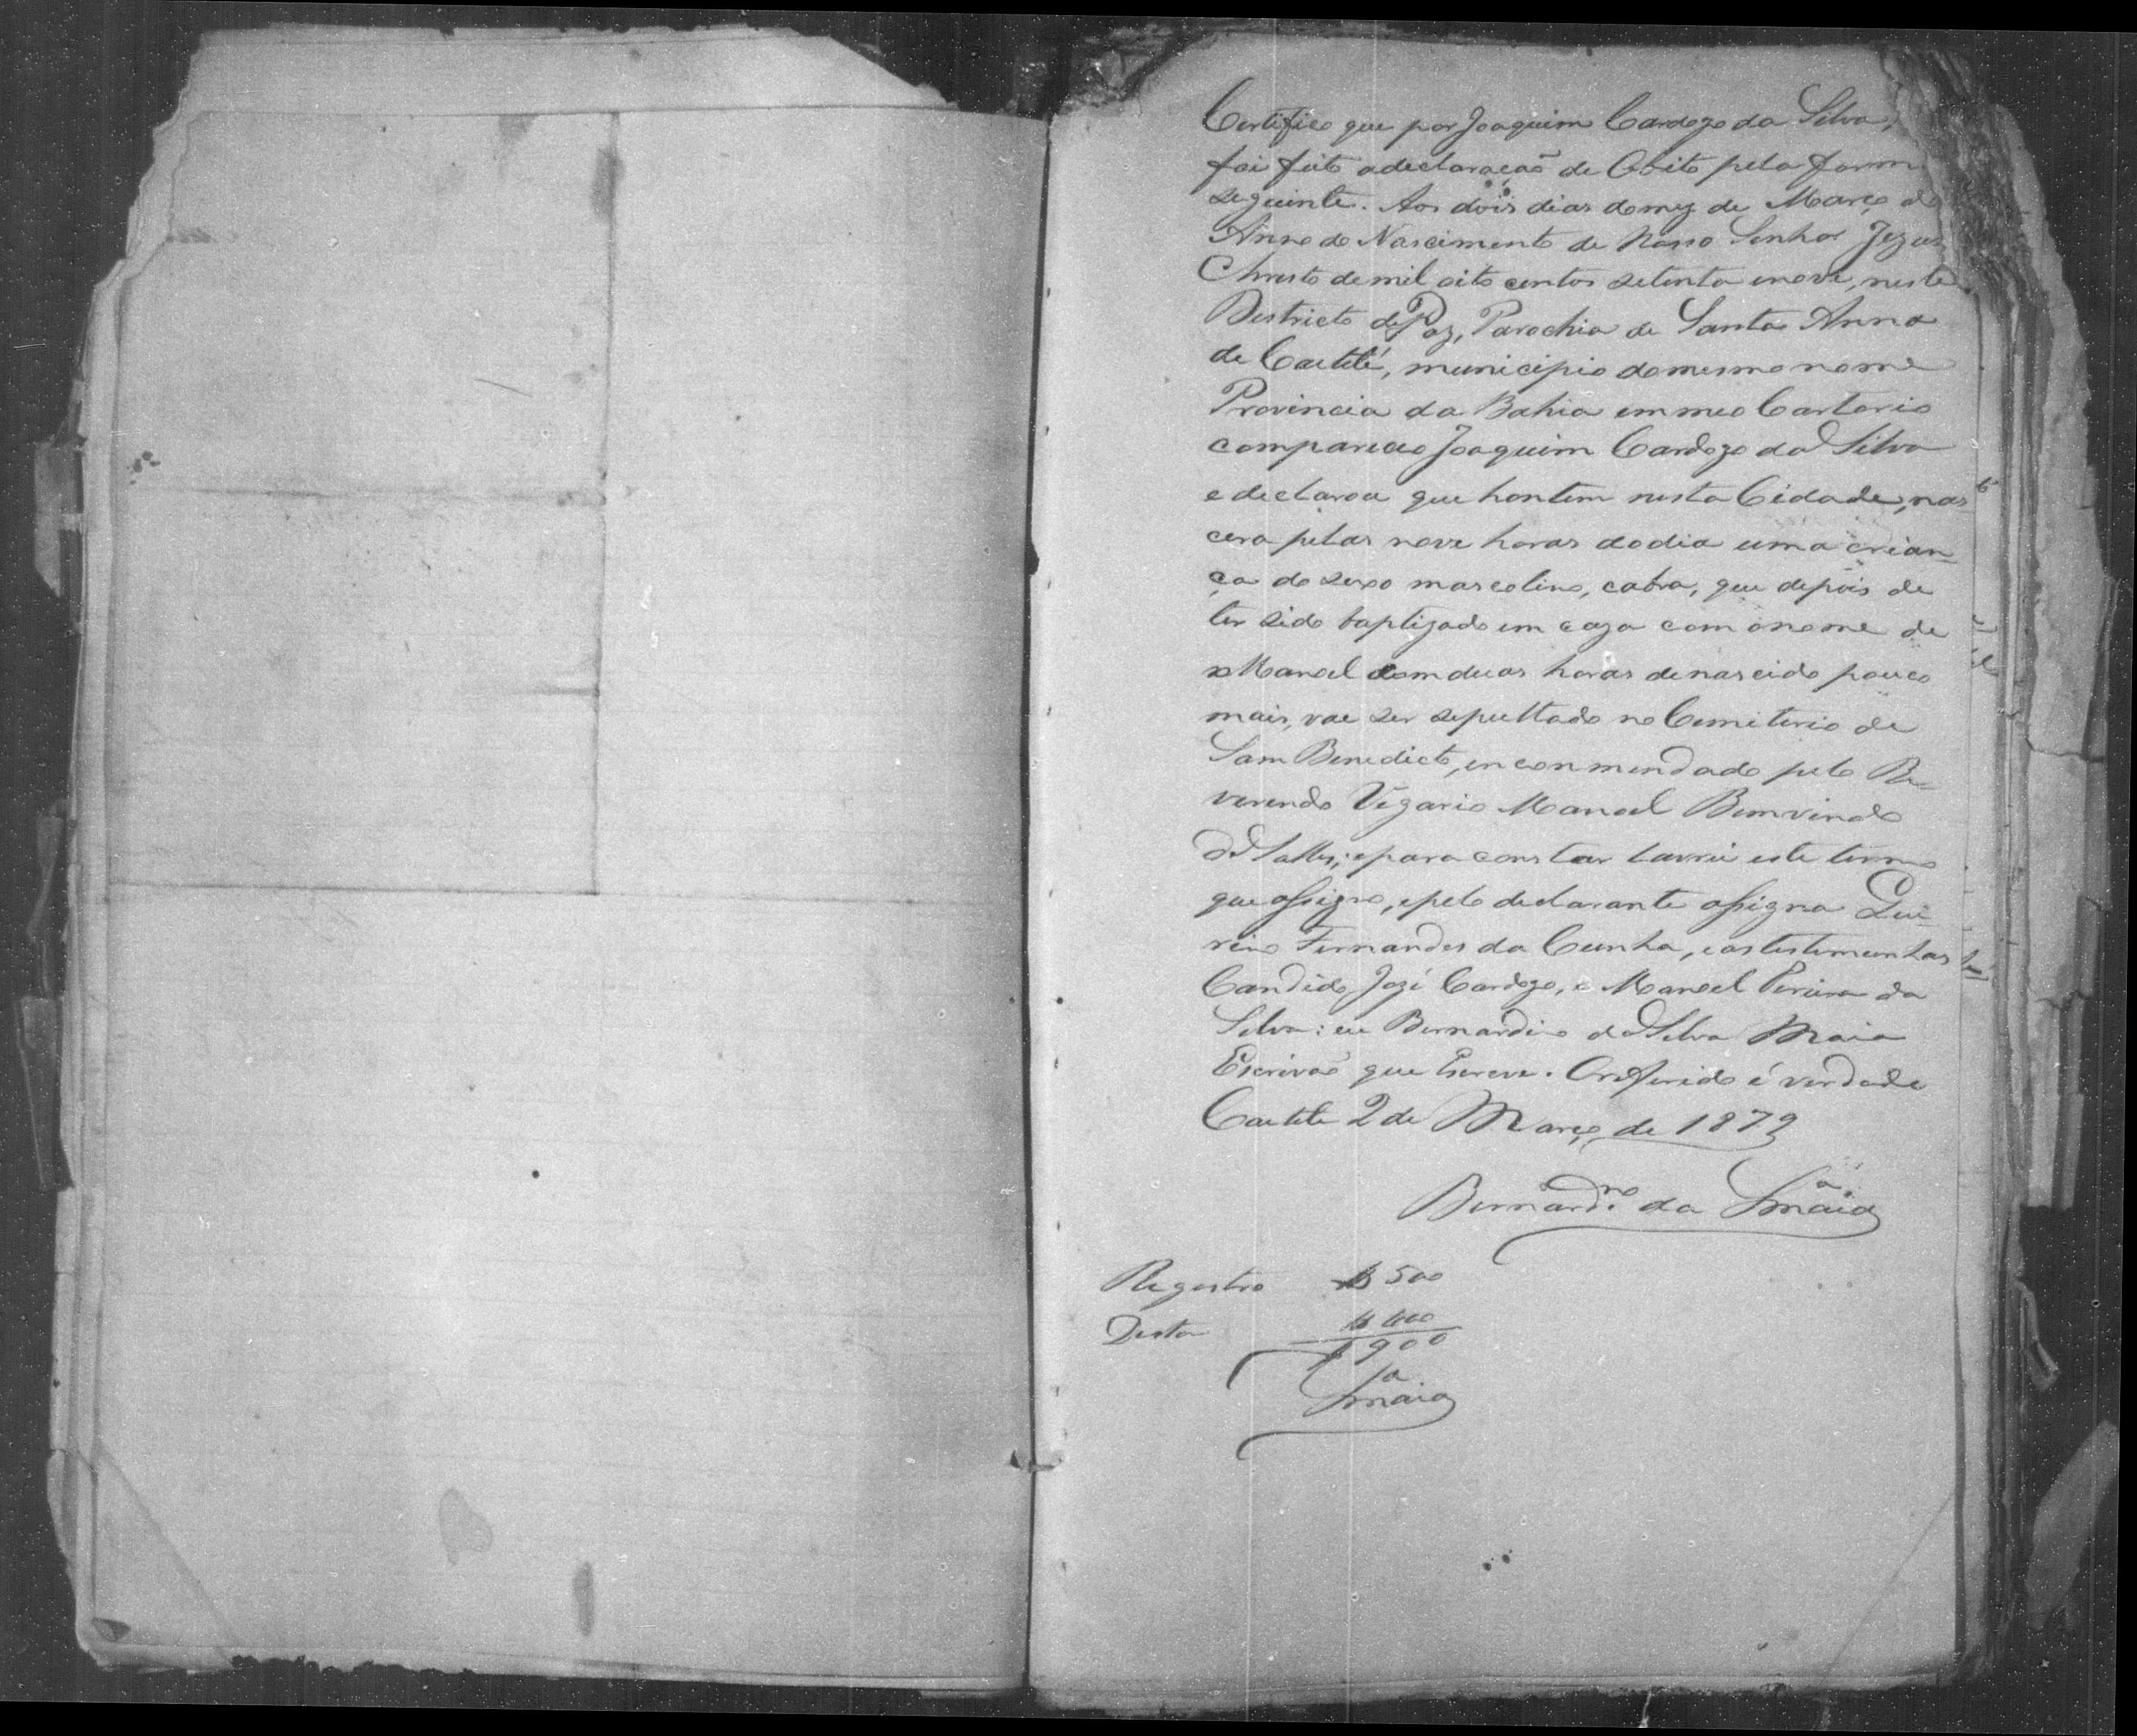 Certifico que por Joaquim Cardozo da Silva,
foi feito a declaração de Obito pela form
seguinte. Aos dois dias do mez de Março do
Anno do Nascimento de Nosso Senhor Jezus
Christo de mil oito centos setenta e nove, neste
Districto de Paz, Parochia de Santa Anna
de Caetité, municipio do mesmo nome
Provincia da Bahia em meo Cartorio
compareceo Joaquim Cardozo da Silva
e declarou que hontem nesta Cidade, nas
cera pelas nove horas do dia uma crian-
ça do sexo mascolino, cabra, que depois de
ter sido baptizado em caza com o nome de
Manoel com duas horas de nascido pouco
mais, vae ser sepultado no Cemiterio de
Sam Benedicto, enconmendado pelo Re-
verendo Vigario Manoel Bemvindo
de Salles; e para constar lavrei este termo
que assigno, e pelo declarante assigna Qui-
rino Fernandes da Cunha, e as testemunhas
Candido Jozé Cardozo, e Manoel Pereira da
Silva: eu Bernardino da Silva Maia
Escrivão que Escrevi. O referido é verdade
Caetite 2 de Março de 1879
Bernard.no da S.a Maia
Registro 500
Desta 400
900
S.a Maia